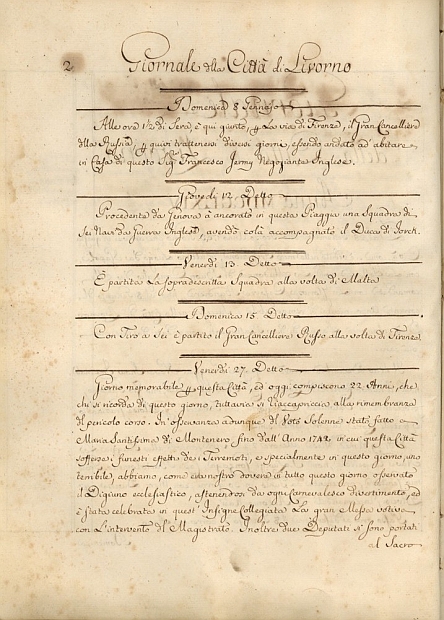 2
Giornale della Città di Livorno
Domenica 8 Gennaio
Alle ore 1½ di Sera, è qui giunto, p la via di Firenze, il Gran Cancelliere
della Russia, p quivi trattenersi diversi giorni, essendo andato ad abitare
in Casa di questo Sig. Francesco Jermy Negoziante Inglese.
Giovedì 12. Detto
Procedente da Genova à ancorato in questa Piaggia una Squadra di
Sei Navi da Guerra Inglesi, avendo colà accompagnato il Duca di Jorck.
Venerdì 13. Detto
È partita la sopradescritta Squadra alla volta di Malta
Domenica 15 Detto
Con Tiro a Sei è partito il Gran Cancelliere Russo alla volta di Firenze
Venerdì 27. Detto
Giorno memorabile p questa Città, ed oggi compiscono 22 Anni, che
chi si ricorda di questo giorno, tuttavia si raccapriccia alla rimembranza
del pericolo corso. In osservanza adunque del Voto Solenne stato fatto a
Maria Santissima di Montenero fino dall'Anno 1742, in cui questa Città
sofferse i funesti effetti dei Terremoti, e specialmente in questo giorno uno
terribile, abbiamo, come era nostro dovere in tutto questo giorno osservato
il Digiuno ecclesiastico, astenendosi da ogni Carnevalesco divertimento, ed
è stata celebrata in quest' Insigne Collegiata La gran Messa votiva
con l'intervento del Magistrato. Inoltre due Deputati si sono portati
al Sacro